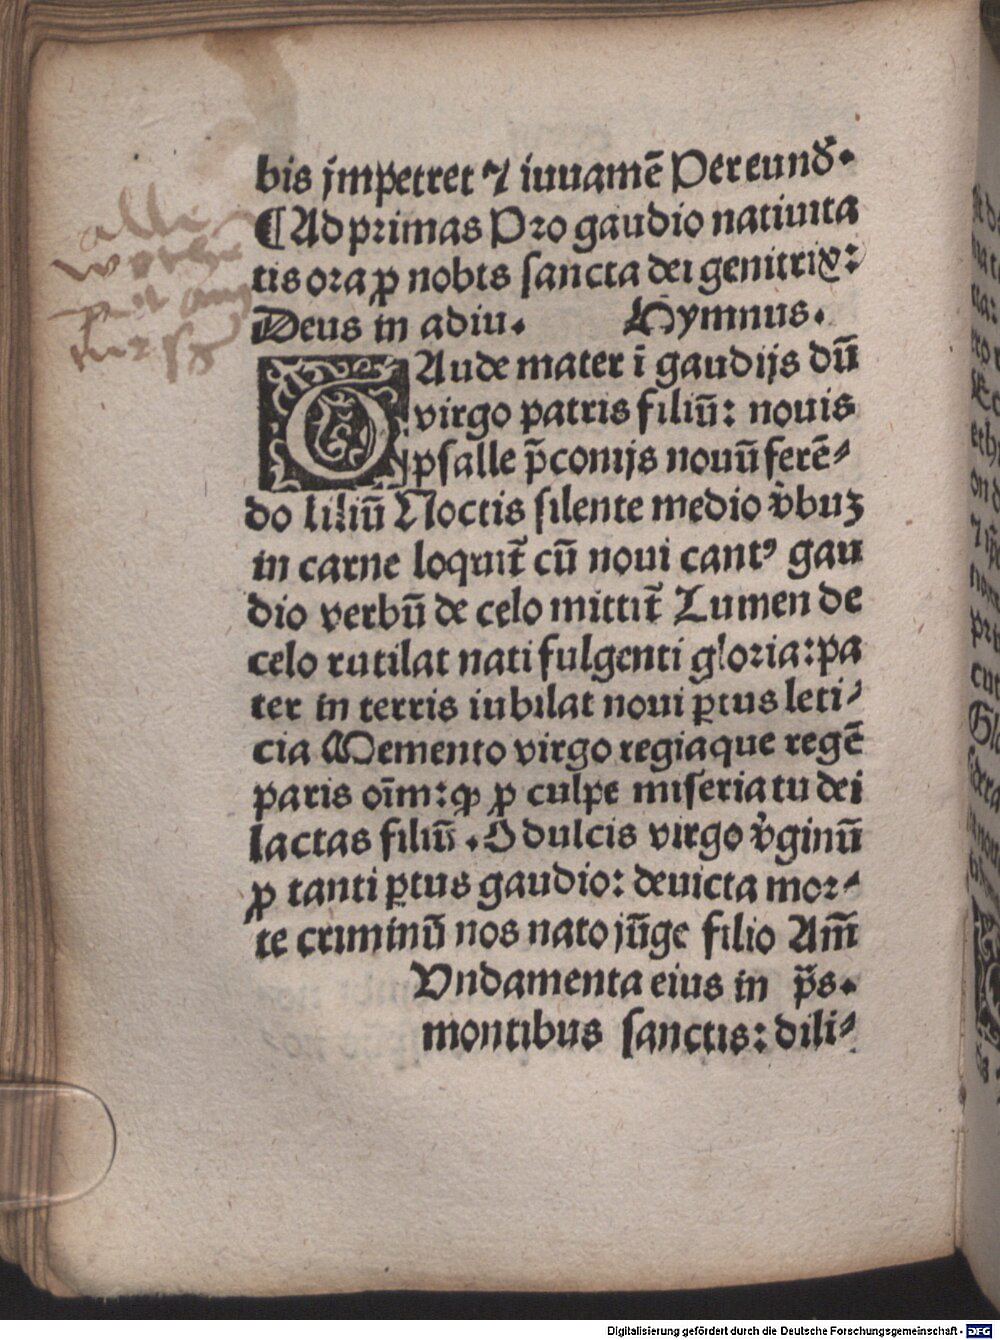 bis jmpetret ⁊ iuuamē Per eund̄.
¶ Ad primas Pro gaudio natiuita
tis ora ꝓ nobis sancta dei genitrix:
Deus in adiu. Hymnus.
GAude mater ī gaudijs dū
virgo patris filiū: nouis
psalle p̄conijs nouū ferē⸗
do liliū Noctis silente medio v̓buꝫ
in carne loquit᷑ cū noui cantꝰ gau
dio verbū de celo mittit᷑ Lumen de
celo rutilat nati fulgenti gloria: pa
ter in terris iubilat noui ꝑtus leti⸗
cia Memento virgo regia que regē
paris oīm: ꝙ ꝓ culpe miseria tu dei
lactas filiū. O dulcis virgo v̓ginū
ꝓ tanti ꝑtus gaudio: deuicta mor⸗
te criminū nos nato jūge filio Am̄
Vndamenta eius in p̄s.
montibus sanctis: dili⸗
alle
Digitalisierung gefördert durch die Deutsche Forschungsgemeinschaft - DFG